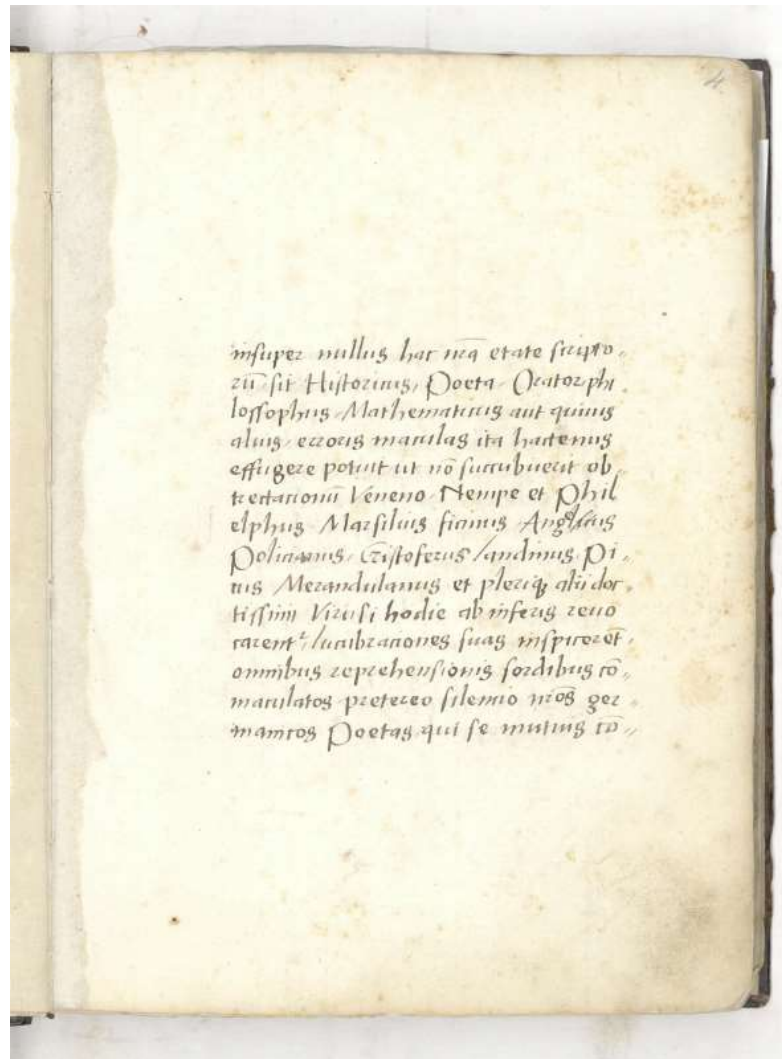 4
insuper nullus hac nr̄a etate scripto〃
rū sit Historicus, Poeta, Orator phi
lossophus, Mathematicus aut quiuis
alius, erroris maculas ita hactenus
effugere potuit ut nō succubuerit ob
trectacionū Veneno. Nempe et Phil
elphus Marsilius ficinus Angelicus
Policianus, Cristoferus landinus Pi〃
cus Merandulanus et pleriqꝫ alii doc〃
tissimi Viri si hodie ab inferis reuo
carentᷣ, lucubraciones suas inspicerēt〃
omnibus reprehensionis sordibus cō〃
maculatos pretereo silencio nr̄os ger〃
manicos Poetas qui se mutuis cō〃